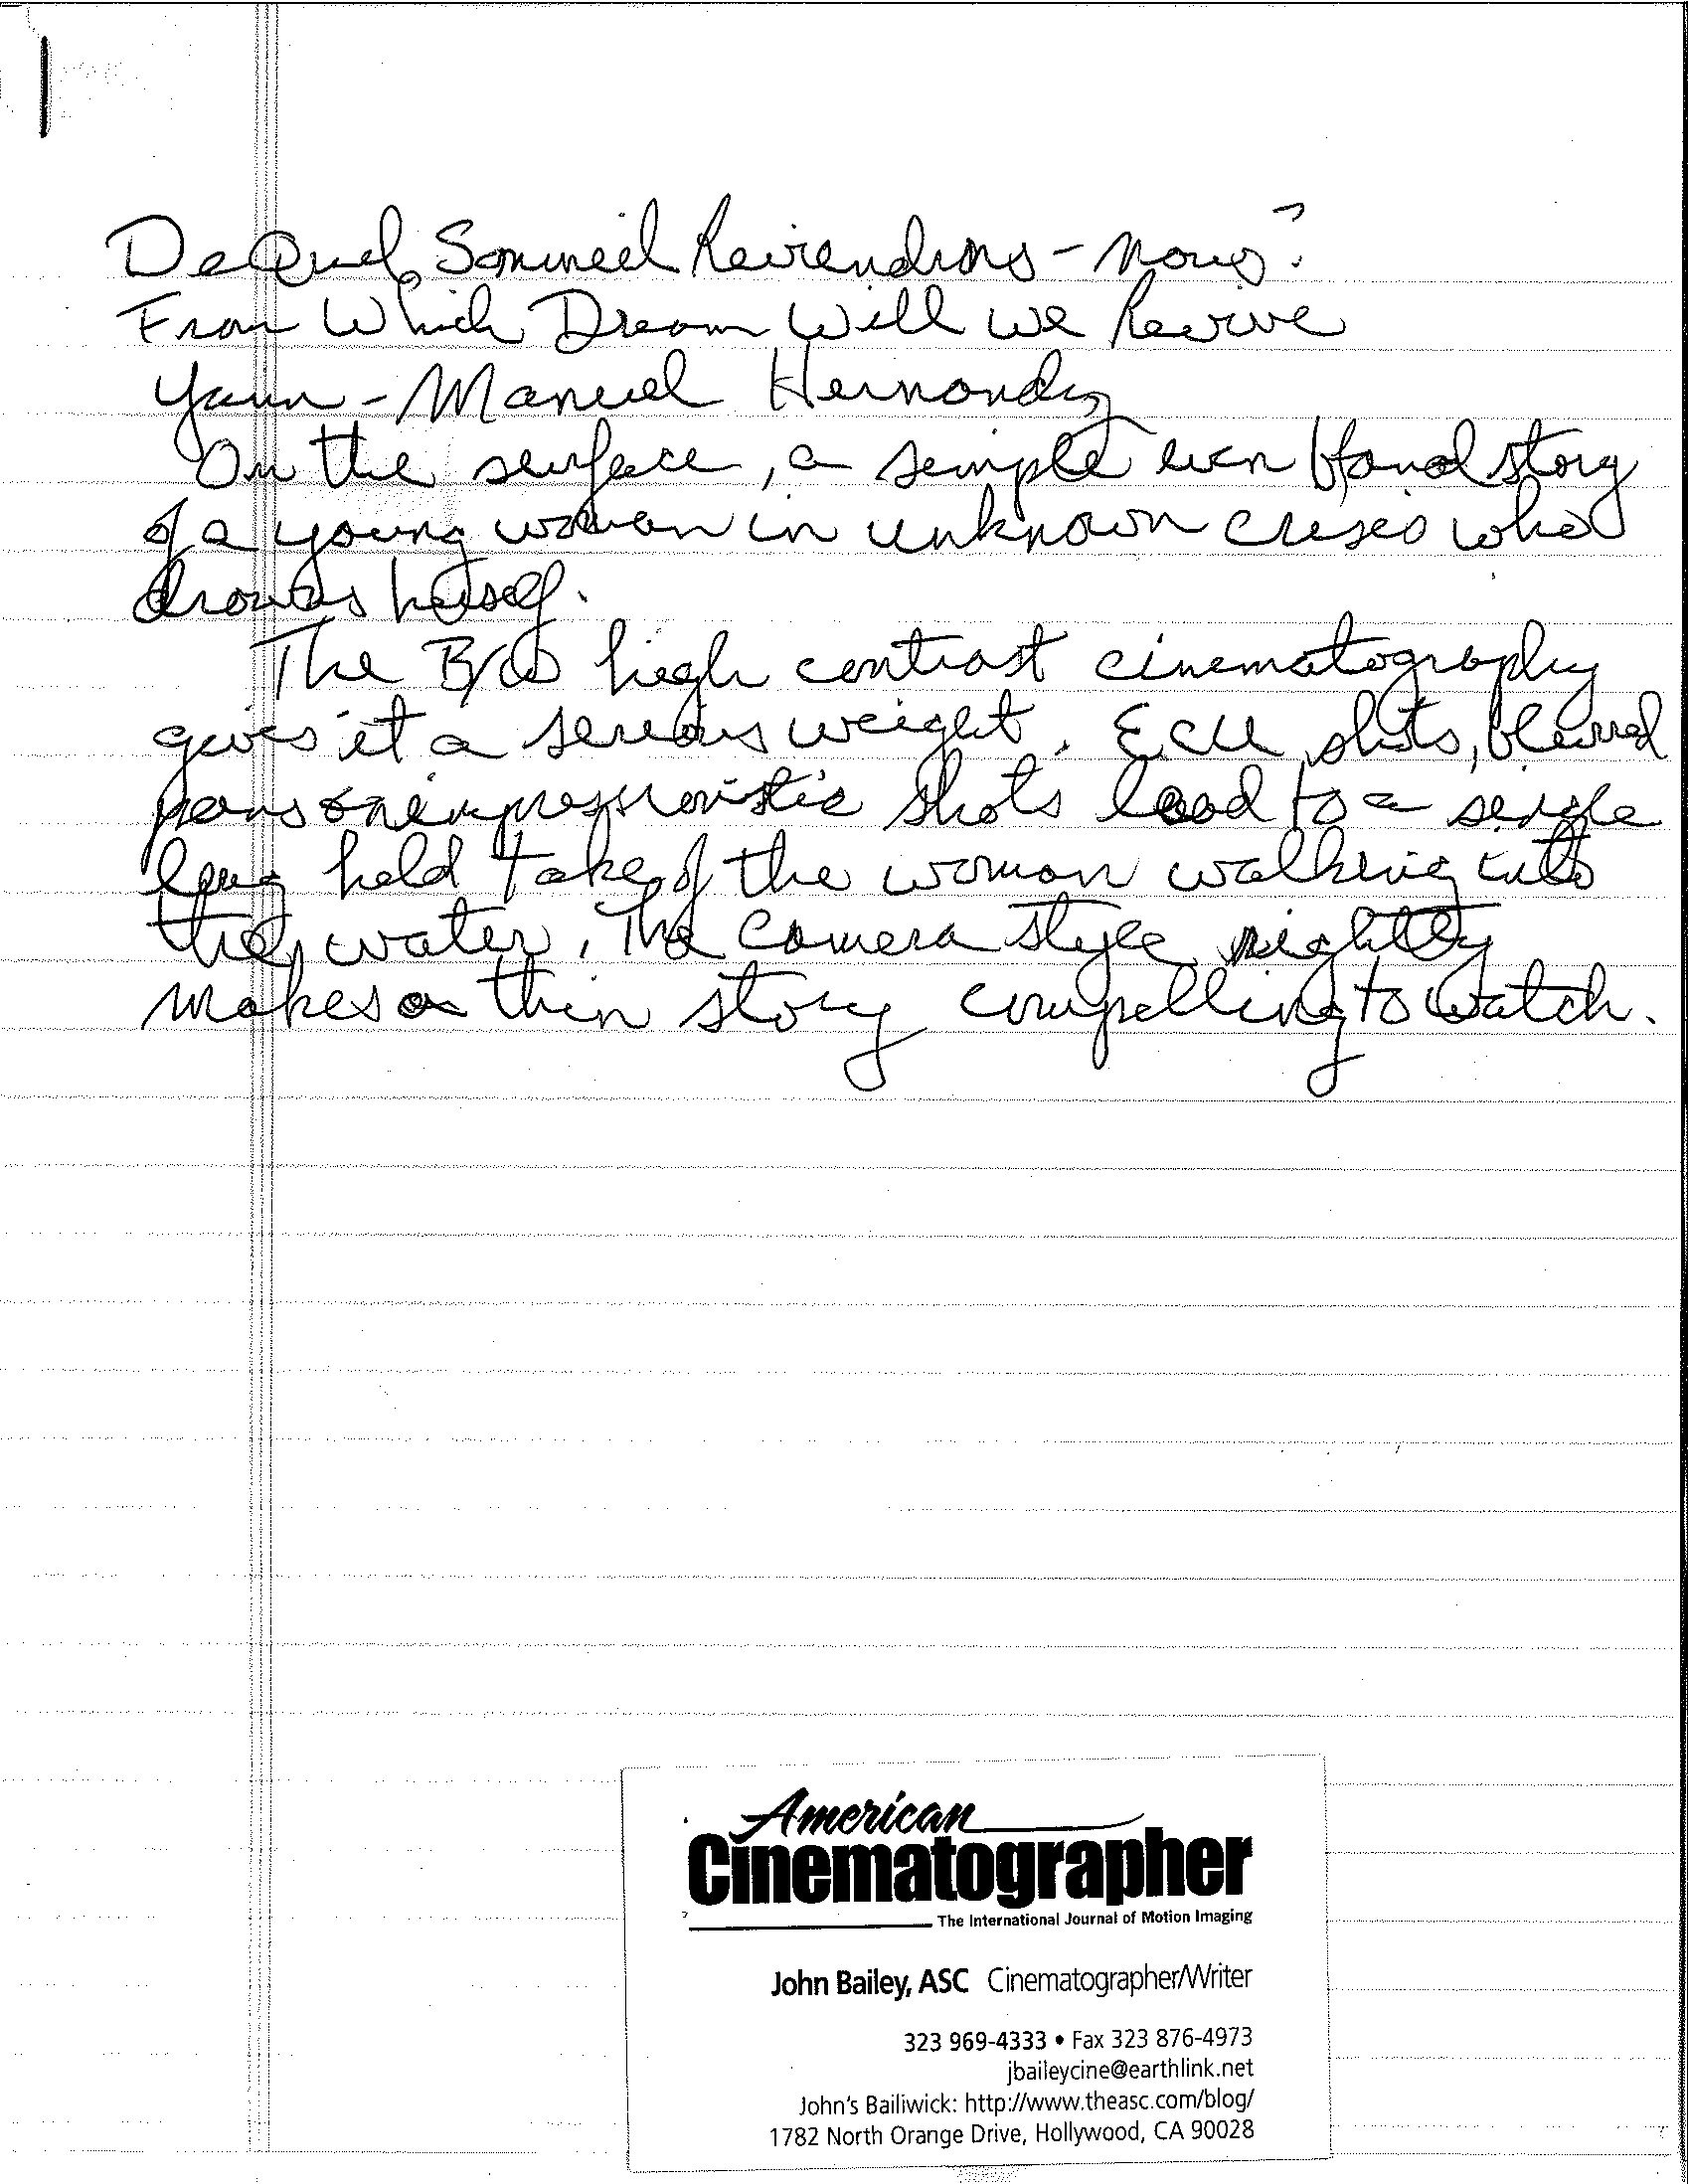 De Quel Sommeil Reviendrons-nous?
From Which Dream Will we Revive
Yann-Manuel Hernandez
On the surface, a simple even banal story
of a young woman in unknown crisis who
drowns herself.
The B/W high contrast cinematography
gives it a serious weight. ECU shots, blurred
pans impressionistic shots lead to a single
long held take of the woman walking into
the water. The camera style rightly
makes a thin story compelling to watch.
American
Cinematographer
The International Journal of Motion Imaging
John Bailey, ASC Cinematographer/Writer
323 969-4333 • Fax 323 876-4973
jbaileycine@earthlink.net
John's Bailiwick: http://www.theasc.com/blog/
1782 North Orange Drive, Hollywood, CA 90028